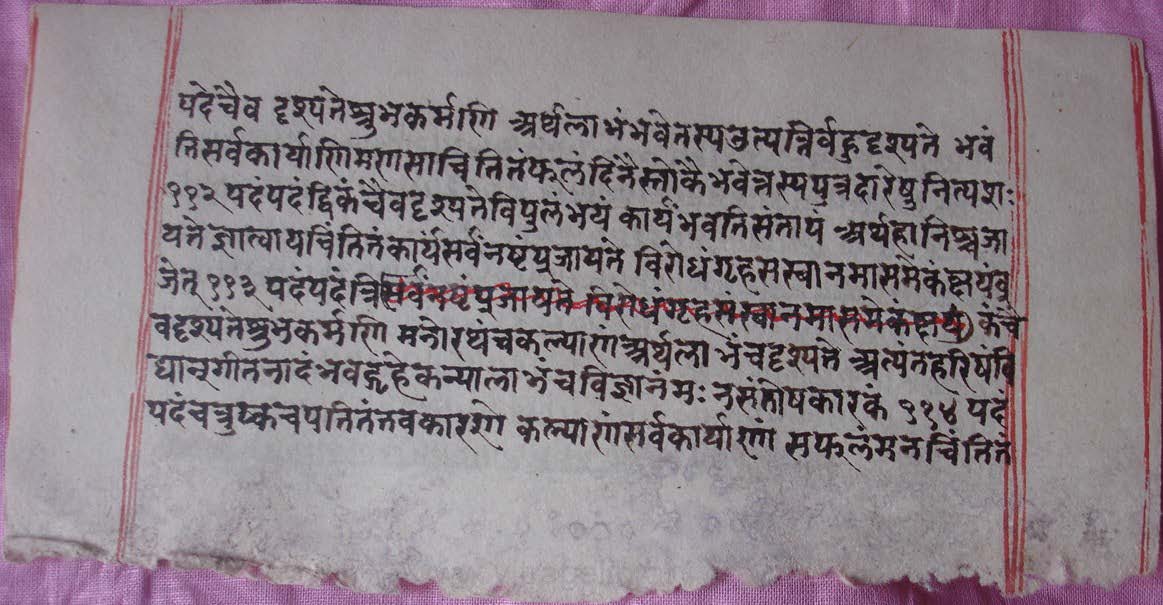 पदेचैव दृश्यतेशुभकर्माणि अर्थलाभंभवेतस्यउत्पन्निर्वहुदृश्यते भवं
तिसर्वकार्याणिमणसाचिंतितंफलंदिनैस्तोकैभवेत्तस्यपुत्रदारेषुनित्यशः
११२ पदंपदंद्विकंचैवदृश्यतेविपुलंभयं कार्यंभवतिसंतापं अर्थहानिश्चजा
यते ज्ञात्वायचिंतितंकार्यंसर्वनष्टंप्रजायते विरोधंगृहसस्थानमासमेकंष्टायंव्र
जेत् ११३ पदंपदंत्रिसर्वनष्टंप्रजायते विरोधंगृहसंस्थानमासमेकंष्टायं कंचै
वदृश्यंतेशुभकर्माणि मनोरथंचकल्याणंअर्थलाभंचदृश्यते अत्यंतहरिषंवि
द्यान्गीतनादंभवद्गृहेकन्यालाभंचविज्ञानंमःनसंतोषकारकं ११४ पदं
पदंचत्रुष्कचपतितंतवकारणे कल्याणंसर्वकार्याणां सफलंमनचिंतितं